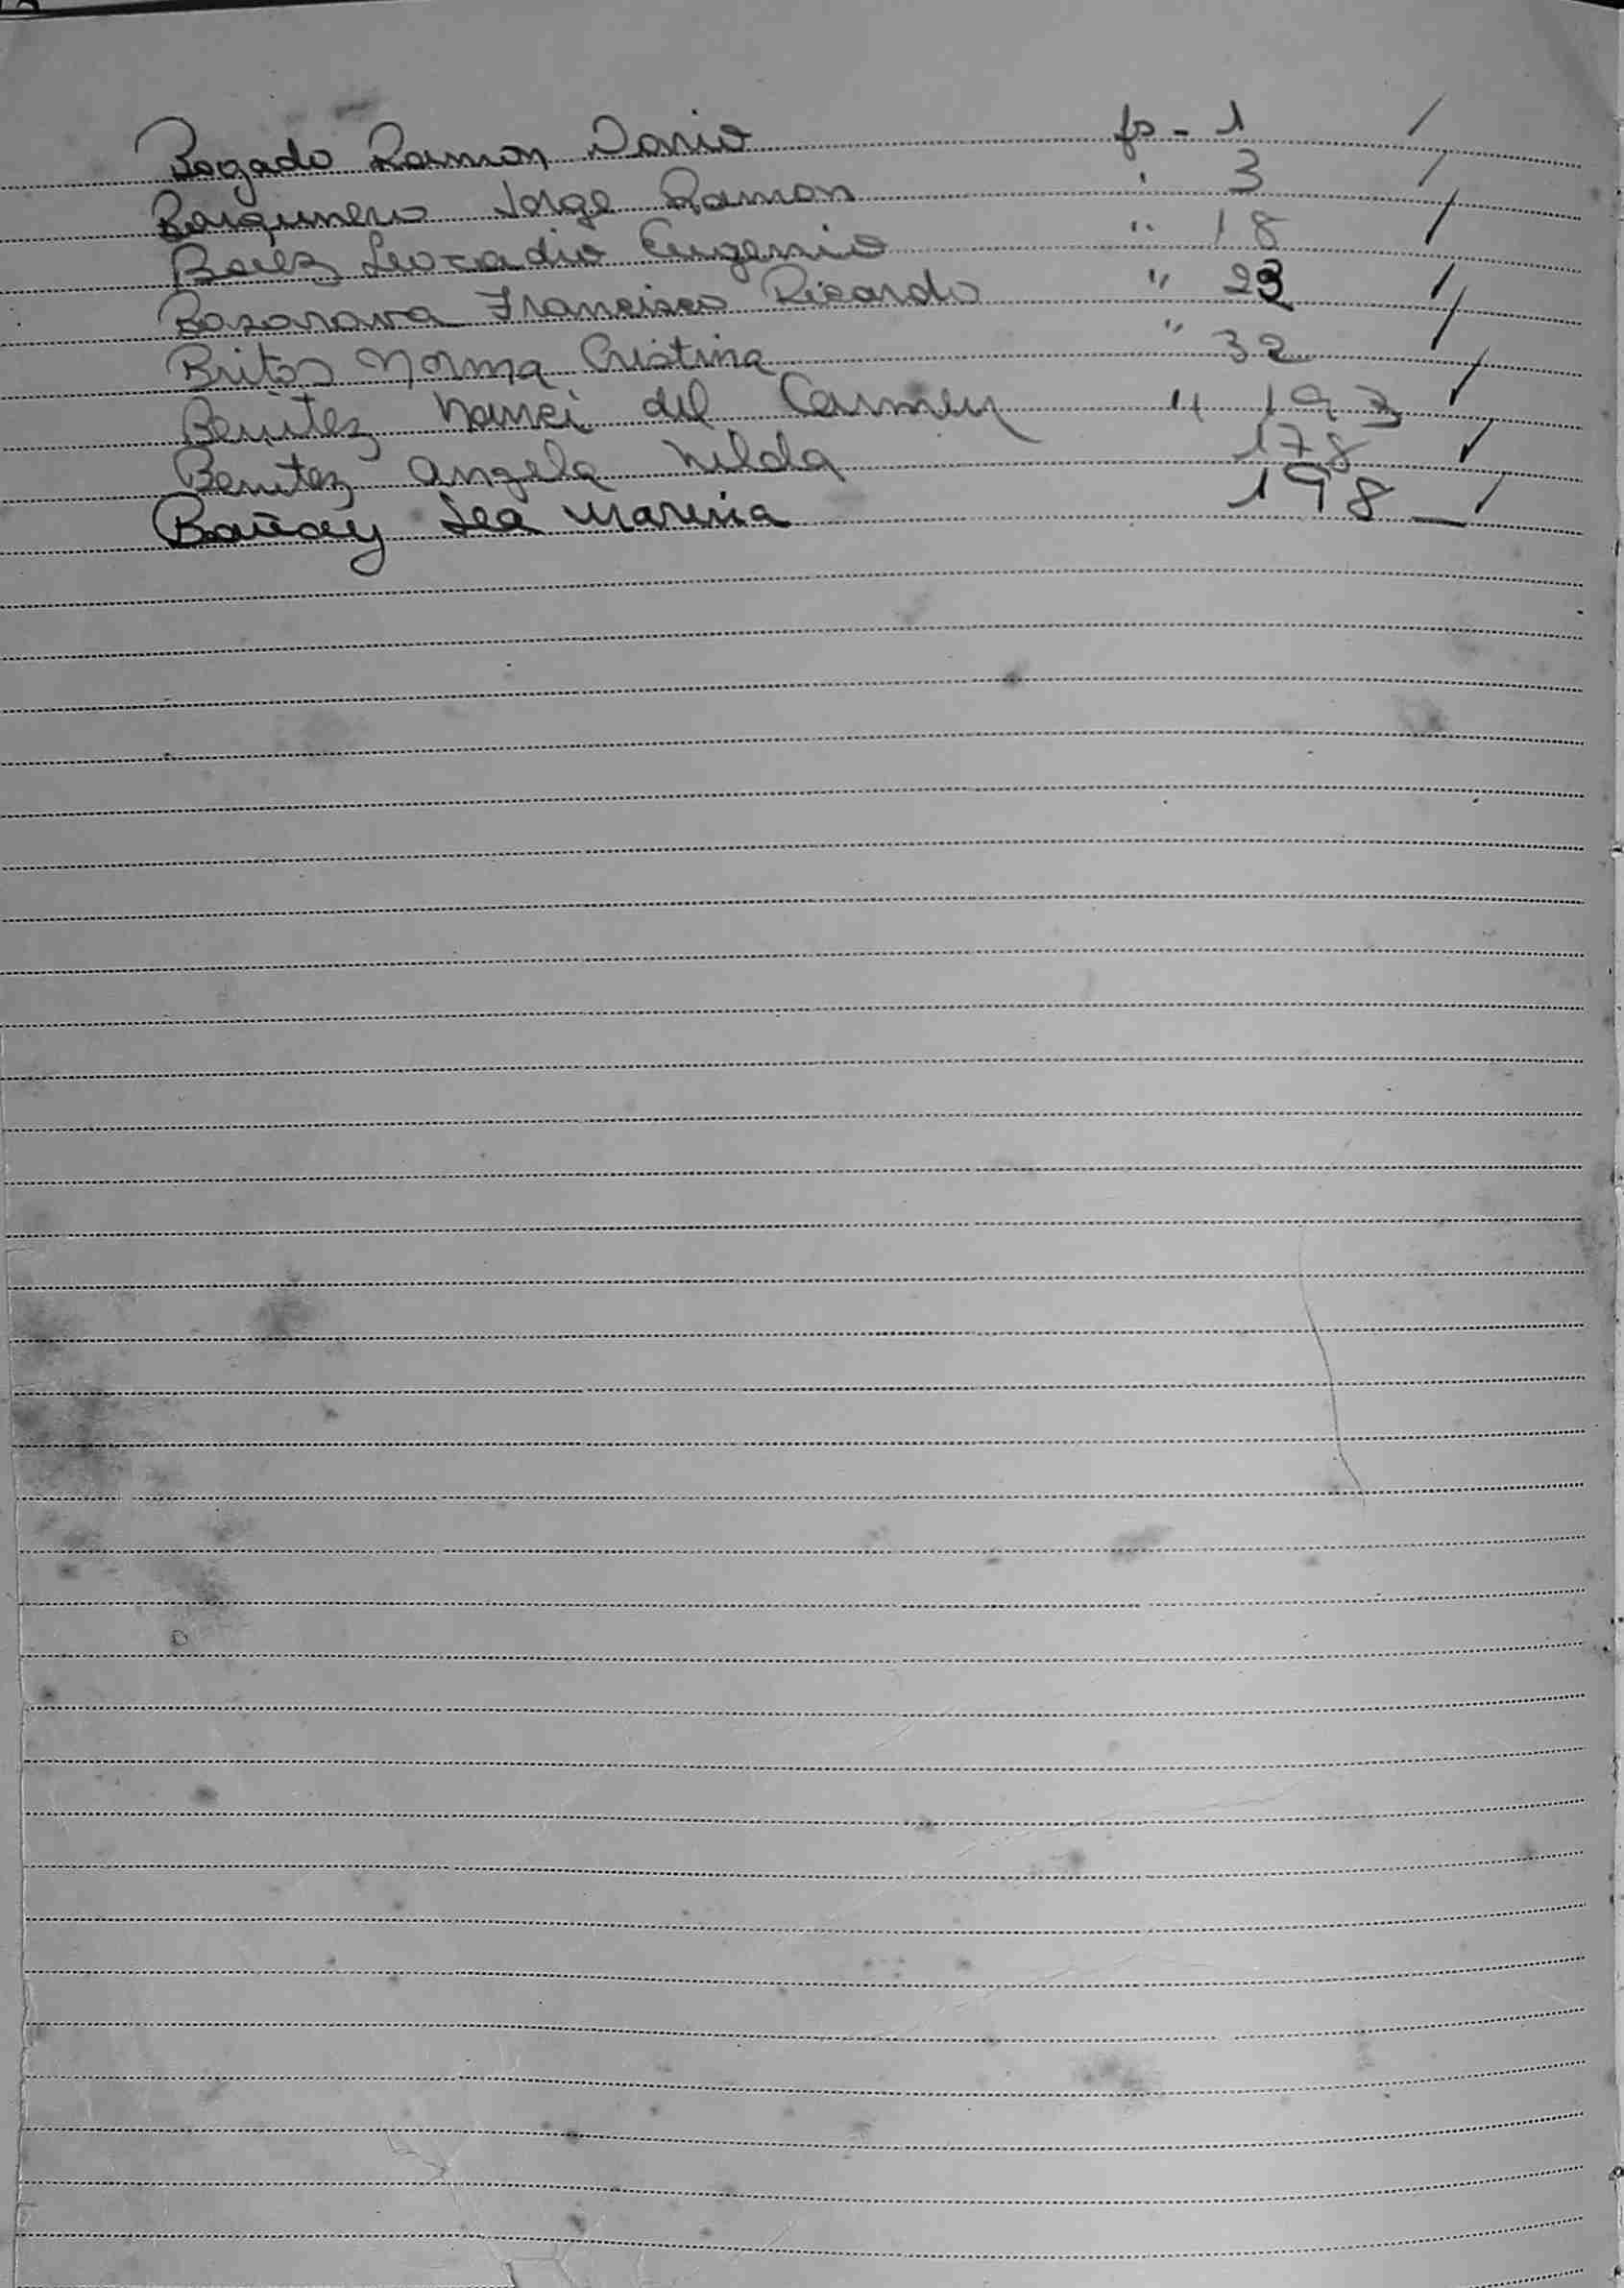 Bogado Ramon Dario fs - 1 /
Jorge Ramon " 3 /
Baéz Leocadio Eugenio " 18 /
Francisco Ricardo " 23 /
Britos Norma Cristina " 32 /
Benitez Nanci del Carmen " 193 /
Benitez Angela Nilda 178 /
Lea Marina 198 — /